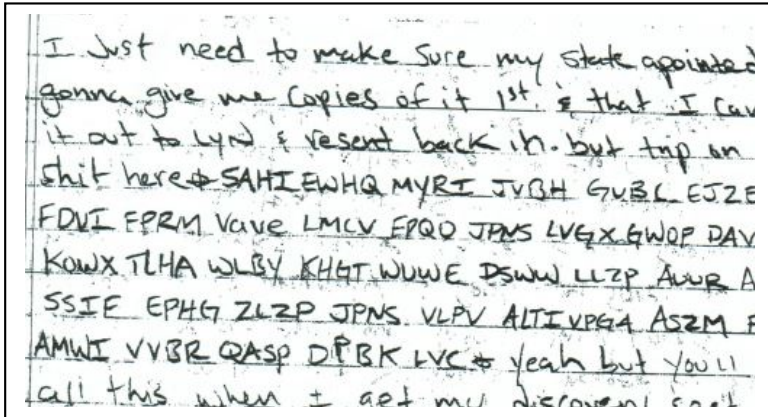 I Just need to make Sure my state apointed
gonna give me Copies of it 1st. & that I can
it out to LYN & resent back in. but trip on
shit here SAHIEWHQ MYRI JVBH GVBL EJZE
FDVI EPRM Vave LMCV EPQO JPNS LVGX GWOP DAV
KOWX TLHA WLBY KHGT WUWE DSWW LLZP AVVR A
SSIE EPHG ZLZP JPNS VLPV ALTI VPGA ASZM
AMWI VVBR QASP DPBK LVC yeah but you'll
call this when I get my discovery